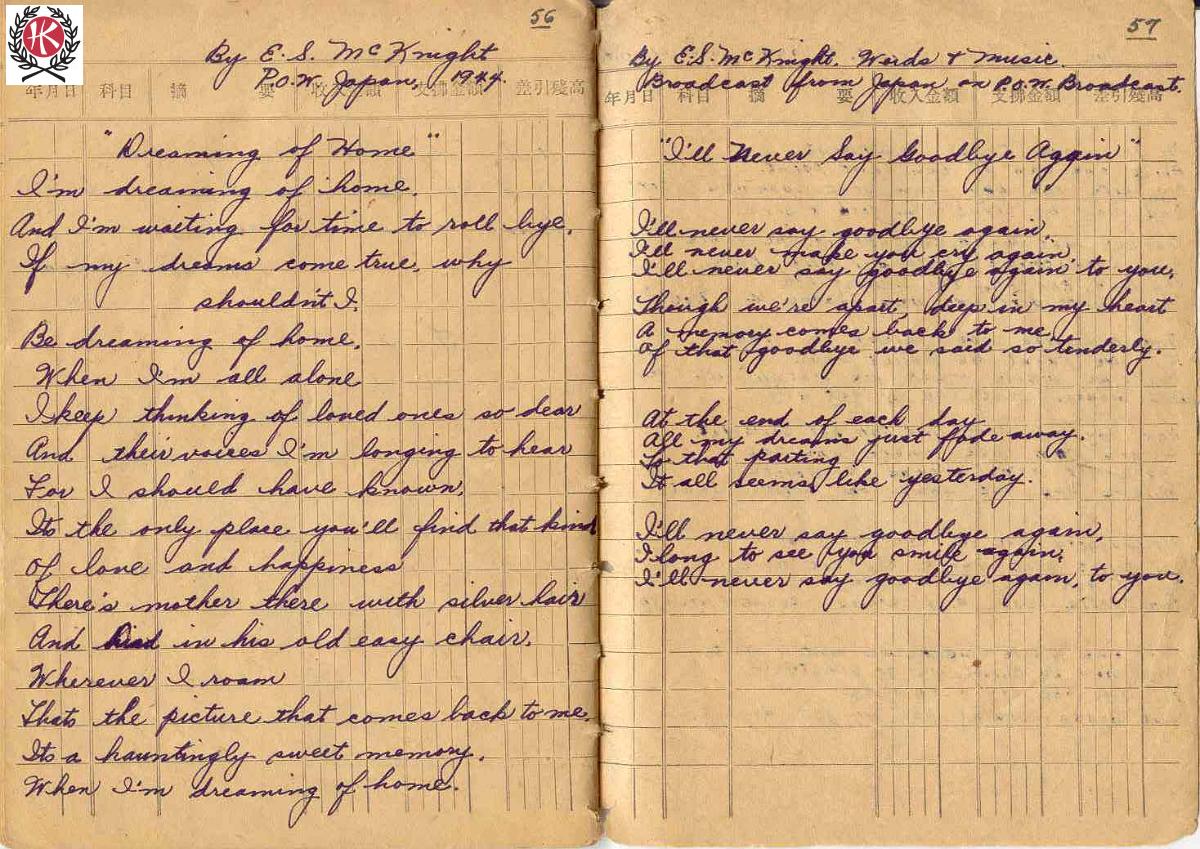 HK
56
By E. S. McKnight
P.O.W. Japan, 1944.
年月日 科目 摘 要 收入金額 支拂金額 差引殘高
"Dreaming of Home"
I'm dreaming of home.
And I'm waiting for time to roll bye.
If my dreams come true, why
shouldn't I.
Be dreaming of home.
When I'm all alone
I keep thinking of loved ones so dear
And their voices I'm longing to hear
For I should have known,
Its the only place you'll find that kind
Of love and happiness
There's mother there with silver hair
And in his old easy chair.
Wherever I roam
Thats the picture that comes back to me.
Its a hauntingly sweet memory.
When I'm dreaming of home.
57
By E.S. McKnight. Words & Music.
Broadcast from Japan on P.O.W. Broadcast.
年月日 科目 摘 要 收入金額 支拂金額 差引殘高
"I'll Never Say Goodbye Again"
I'll never say goodbye again.
I'll never make you cry again.
I'll never say goodbye again to you.
Though we're apart, deep in my heart
A memory comes back to me,
Of that goodbye we said so tenderly.
At the end of each day
All my dreams just fade away.
To that parting
It all seems like yesterday.
I'll never say goodbye again,
I long to see you smile again.
I'll never say goodbye again, to you.